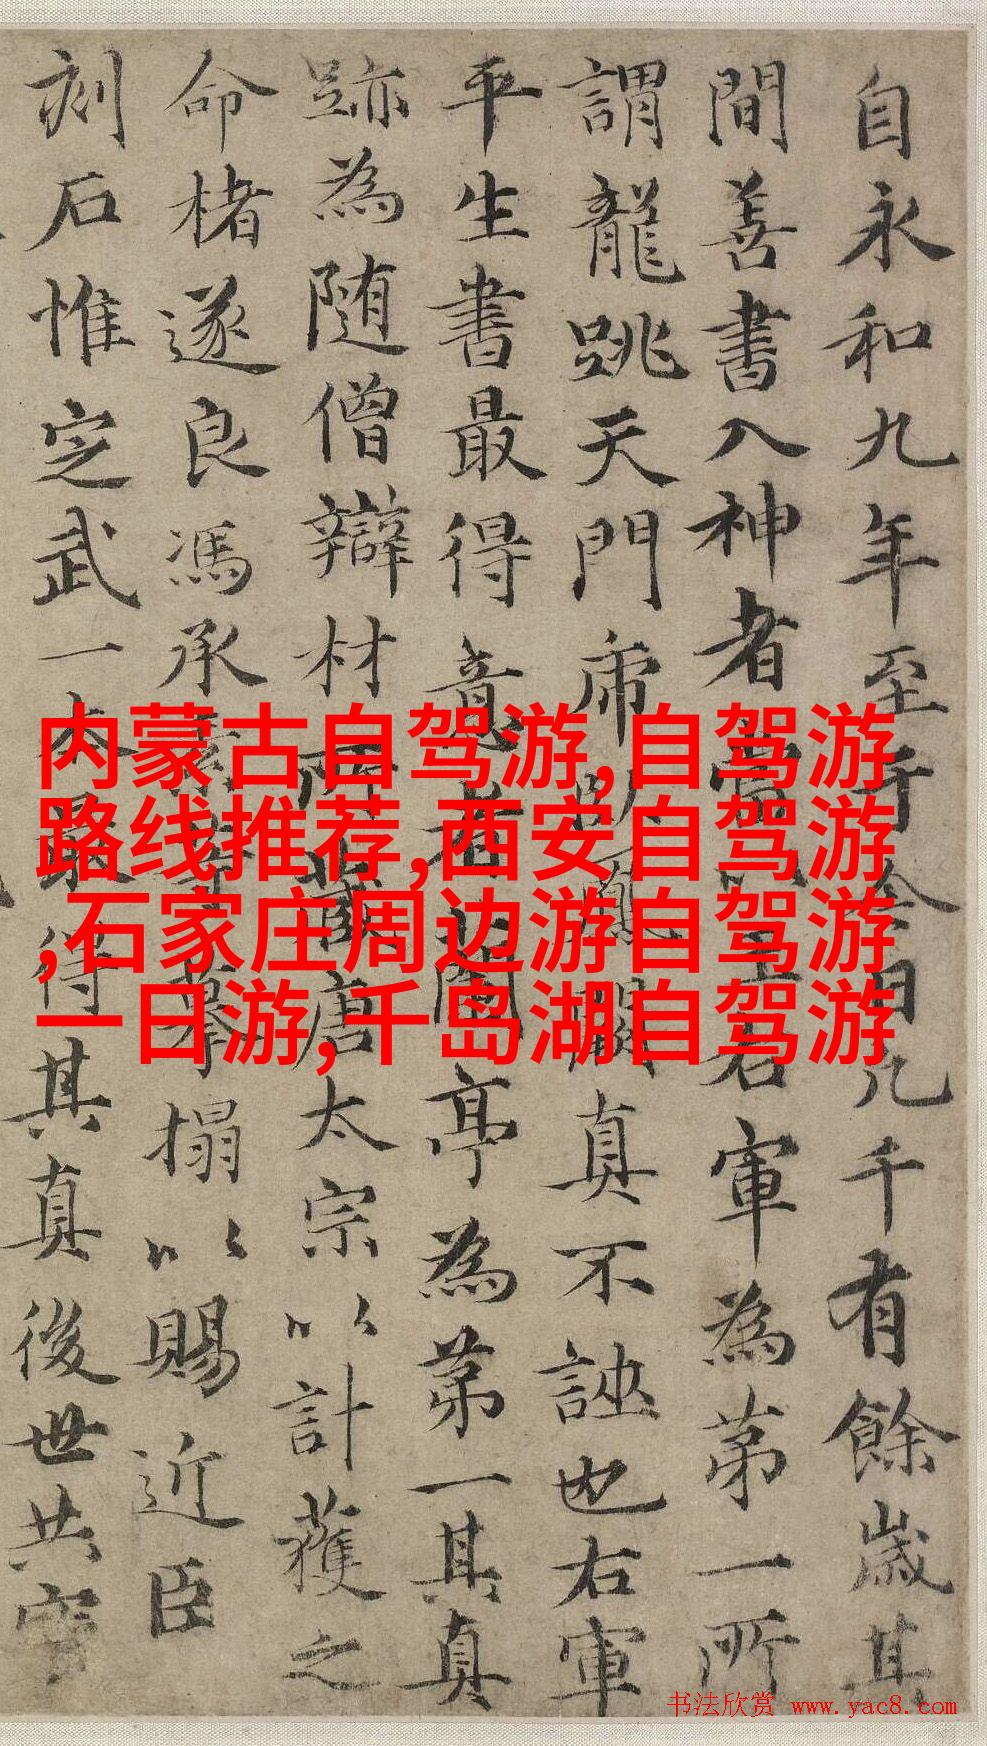 自永和九年至于今日凡千有餘歲其
間善書入神者當以王右軍為第一所
謂龍跳天門虎卧鳳閣真不誣也右軍
平生書最得意者蘭亭為第一其真
跡為随僧辯材所藏唐太宗以計獲之
命楮遂良馮承素摹搨以賜近臣
刻石惟定武一本最得其真後世共寳
内蒙古自驾游,自驾游
路线推荐,西安自驾游
,石家庄周边游自驾游
一日游,千岛湖自驾游
书法欣赏 www.yac8.com